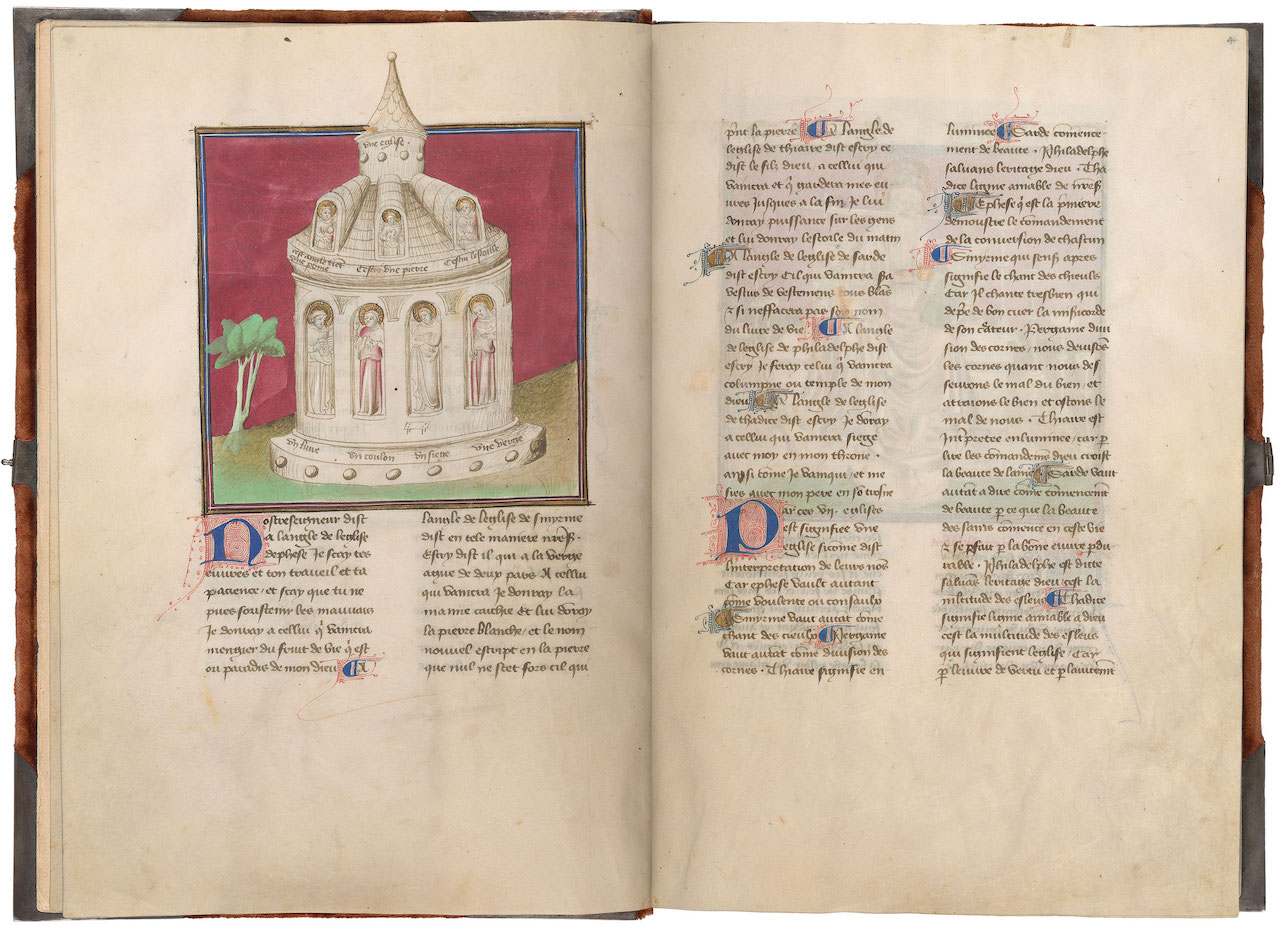 Une eglise
sept angle tiec
une pome
C'estoy une pierre
C'estoy lestoille
Un livre
Un coulon
Un siege
Une verge
Nostreseigneur dist
a langle de leglise
dephese Je scay tes
euvres et ton traveil et ta
pacience / et scay que tu ne
pues soustenir les mauvais
Je donray a cellui q̃ vaincra
mengier du fruit de vie q̃ est
ou paradis de mon dieu A
langle de leglise de smyrme
dist en tele maniere
Escry dist il qui a la verge
ague de deux pars A cellui
qui vaincra Je donray la
manne cachee et lui donray
la pierre blanche / et le nom
nouvel escript en la pierre
que nul ne scet fors cil qui
pñt la pierre A langle de
leglise de thiaire dist escry ce
dist le filz dieu / a cellui qui
vaincra et q̃ gardera mes eu
vres Jusques a la fin Je lui
donray puissance sur les gens
et lui donray lestoile du matin
A langle de leglise de sarde
dist escry Cil qui vaincra sera
vestus de vestemens tous blãs
et si neffacera pas son nom
du livre de vie A langle
de leglise de philadelphe dist
escry Je feray celui q̃ vaincra
columpne ou temple de mon
dieu A langle de leglise
de thadice dist escry Je doray
a cellui qui vaincra siege
avec moy en mon throne
ainsi cõme Je vainqui / et me
sies avec mon pere en sõ trosne
Par ces vii eglises
est signifiee une
eglise sicõme dist
linterpretation de leurs nõs
Car ephese vault autant
cõme voulente ou conseulx
Smyrme vaut autãt cõme
chant des cieulx Pergame
vaut autãt cõme division des
cornes . Thiaire signifie en
luminee Sarde cõmence
ment de beaute . Philadelphe
saluans leritage dieu . Tha
dice ligñie amable de
Ephese q̃ est la p̃miere
demoustre le cõmandement
de la conversion de chascun
Smyrme qui sensuit apres
signifie le chant des cieulz
Car Il chante tresbien qui
dep̃e de bon cuer la misicorde
de son c̃ateur . Pergame divi
sion des cornes / nous devisõs
les cornes quant nous des
sevrons le mal du bien / et
attraions le bien et ostons le
mal de nous . Thiaire est
Int̃pretee enluminee / car p̱
lire les cõmandem̃s dieu croist
la beaute de lame Sarde vaut
autãt a dire cõme cõmencem̃t
de beaute p̱ ce que la beaute
des sains cõmence en ceste vie
et se p̱fait p̱ la bõne euvre p̱du
rable . Philadelphe est ditte
saluãs leritage dieu / cest la
multitude des esleus Thadice
signifie ligñie amable a dieu
cest la multitude des esleus
qui signifient leglise / Car
p̱ leuvre de vertu et p̱laurem̃t